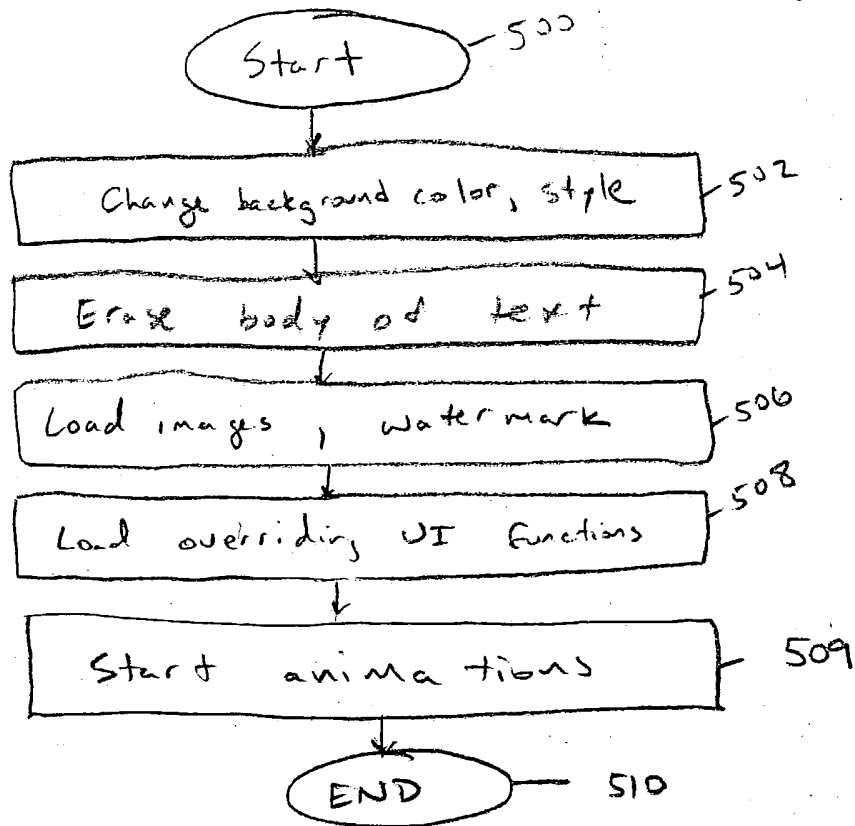 Start 500
Change background color, style 502
Erase body of text 504
Load images, watermark 506
Load overriding UI functions 508
Start animations 509
END 510